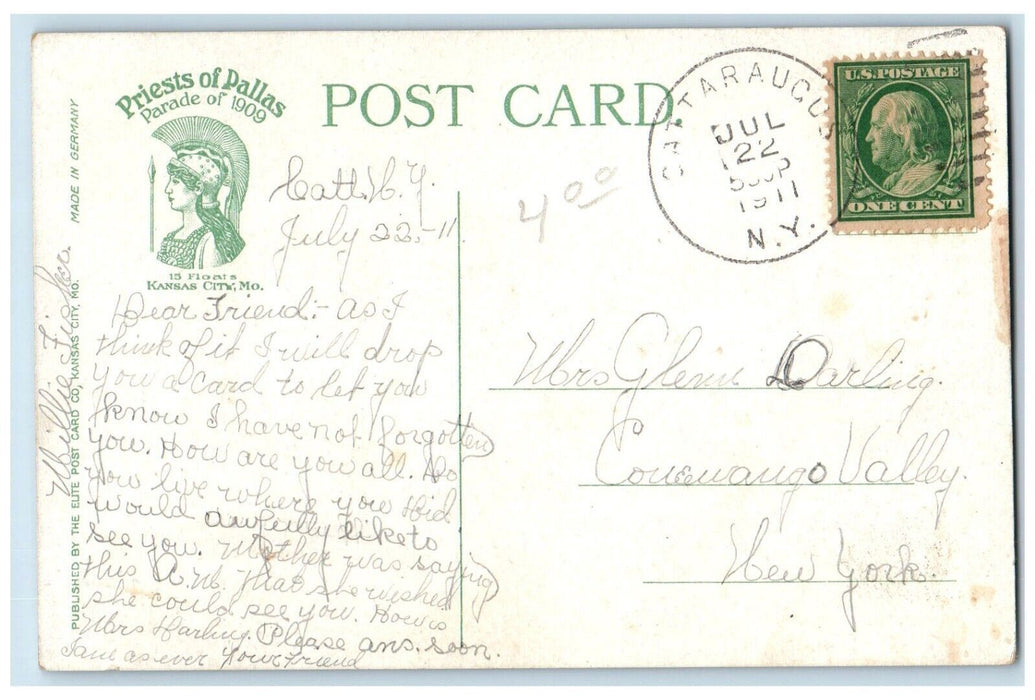 Priests of Pallas
Parade of 1909
15 Floats
KANSAS CITY, MO.
POST CARD.
CATTARAUGUS
JUL
22
1911
N.Y.
U.S. POSTAGE
ONE CENT
MADE IN GERMANY
PUBLISHED BY THE ELITE POST CARD CO., KANSAS CITY, MO.
4 00
Catt. N.Y.
July 22-11
Dear Friend:- as I
think of it I will drop
you a card to let you
know I have not forgotten
you. How are you all. Do
you live where you did
would awfully like to
see you. Mother was saying
this A.M. that she wished
she could see you. How is
Mrs Please ans. soon.
Same as ever Your Friend
Willie
Mrs Glenn Darling.
Conewango Valley.
New York.